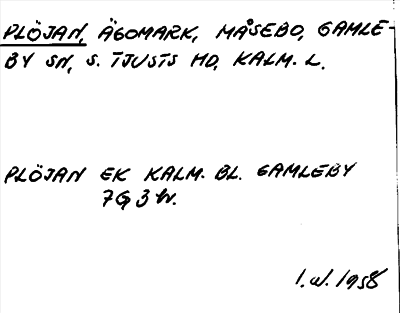 PLÖJAN, ÄGOMARK, MÅSEBO, GAMLE-
BY SN, S. TJUSTS HD, KALM. L.
PLÖJAN EK KALM. BL. GAMLEBY
7G 3 W.
1.W.1958